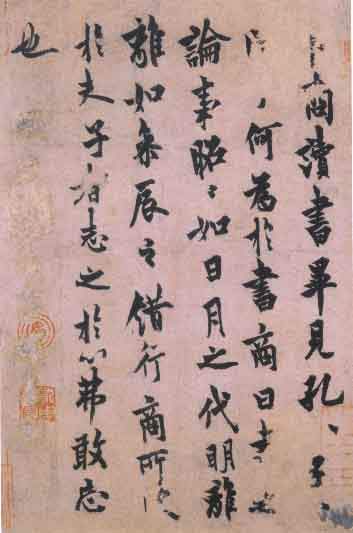 商讀書畢見孔〻子〻
何為於書商曰書之
論事昭〻如日月之代明離
離如參辰之錯行商所
於夫子者志之於心弗敢忘
也